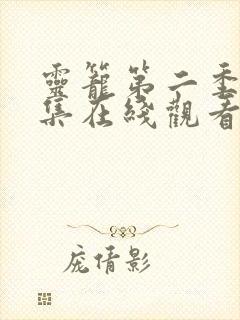 靈籠第二季
集在綫觀看
庞倩影